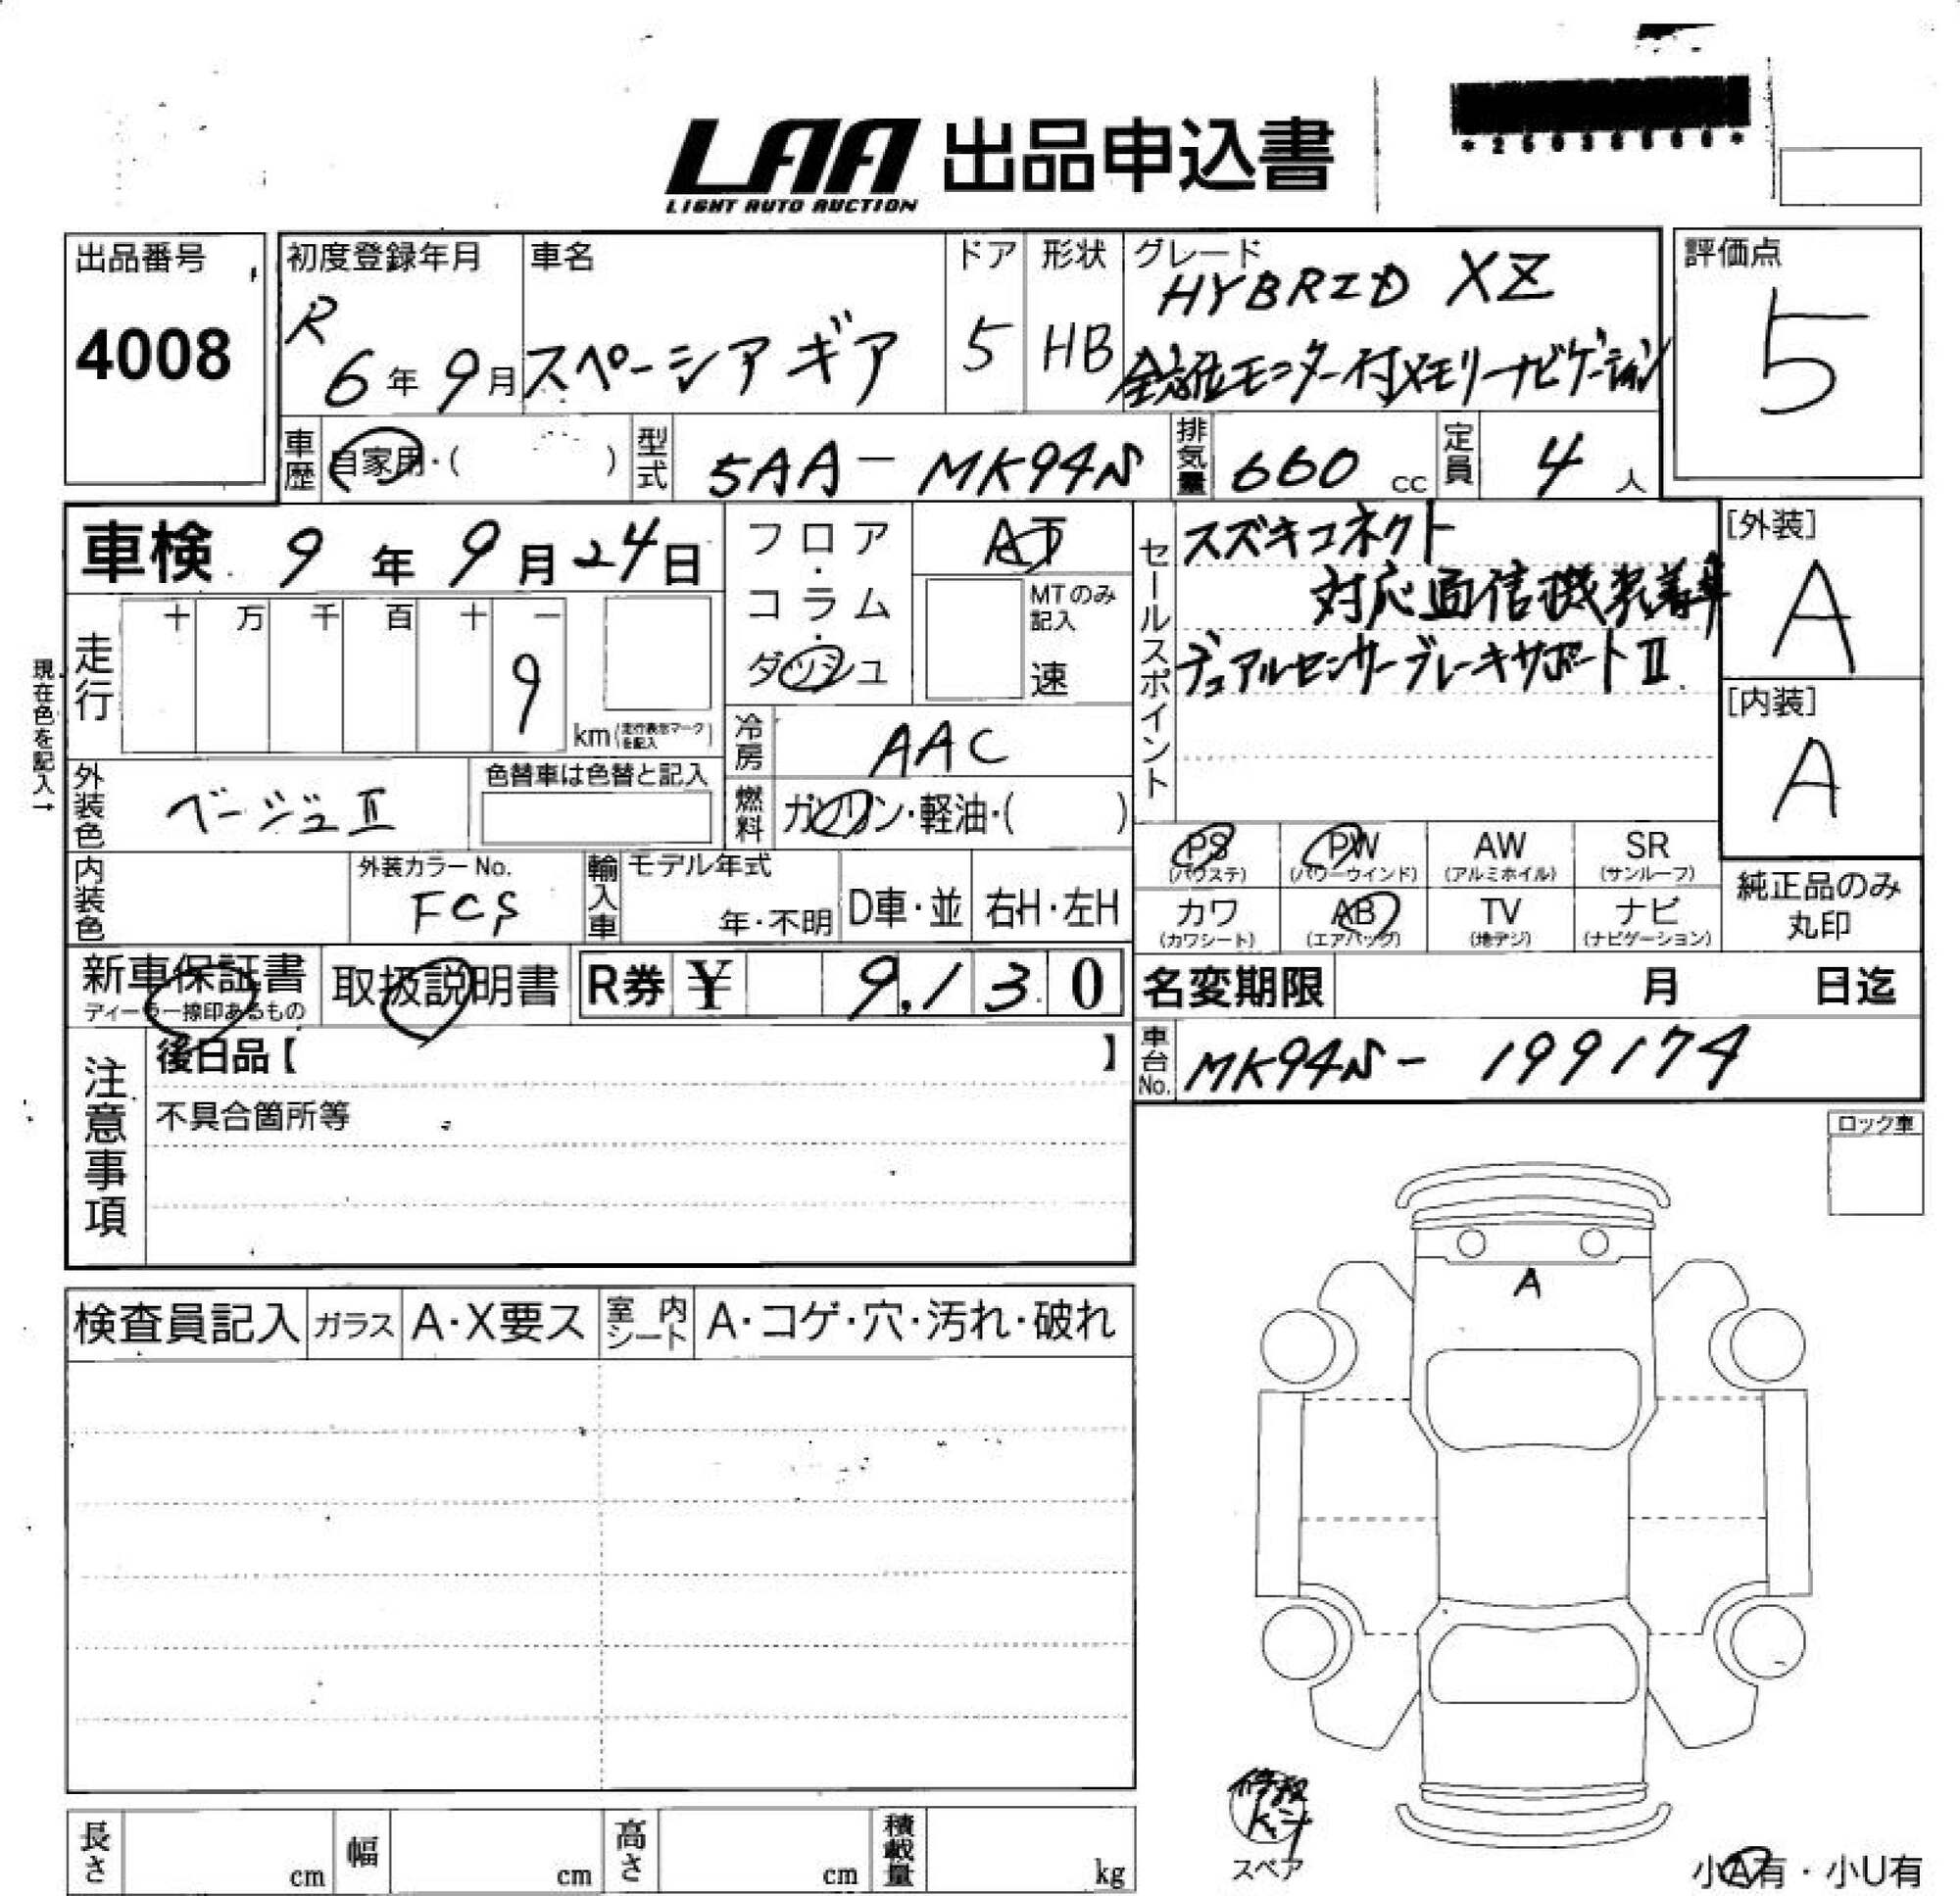 LAA 出品申込書
LIGHT AUTO AUCTION
出品番号
4008
初度登録年月
R
6年9月
車名
スペーシアギア
ドア
5
形状
HB
グレード
HYBRID XZ
全方位モニター付メモリーナビゲーション
評価点
5
車歴
自家用・( )
型式
5AA-MK94S
排気量
660 cc
定員
4人
車検 9年9月24日
走行
十 万 千 百 十 一
9
km(走行表示マークを記入)
現在色を記入→
フロア・コラム・ダッシュ
AT
MTのみ記入
速
セールスポイント
スズキコネクト
対応通信機装着車
デュアルセンサーブレーキサポートⅡ
[外装]
A
[内装]
A
冷房
AAC
外装色
ベージュⅡ
色替車は色替と記入
燃料
ガソリン・軽油・( )
内装色
外装カラーNo.
輸入車
モデル年式
年・不明
D車・並
右H・左H
PS
(パワステ)
PW
(パワーウインド)
AW
(アルミホイル)
SR
(サンルーフ)
カワ
(カワシート)
AB
(エアバッグ)
TV
(地デジ)
ナビ
(ナビゲーション)
純正品のみ
丸印
新車保証書
ディーラー捺印あるもの
取扱説明書
R券 ¥ 9,130
名変期限 月 日迄
車台No.
MK94S-199174
注意事項
後日品【 】
不具合箇所等
ロック車
A
検査員記入
ガラス
A・X要ス
室内シート
A・コゲ・穴・汚れ・破れ
長さ cm
幅 cm
高さ cm
積載量 kg
スペア
小A有・小U有